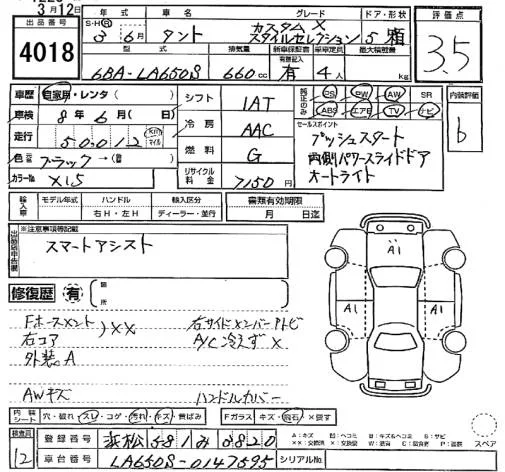 3月12日
出品番号
4018
年式 車名 グレード ドア・形状
S・H・R 3 6月 タント カスタム X スタイルセレクション 5 箱
型式 排気量 新車保証書 乗車定員 最大積載量
有無記入
6BA-LA650S 660cc 有 4人 kg
評価点
3.5
車歴 自家用・レンタ
車検 8年6月( 日)
走行 50012 Km マイル
色 ブラック→( )
カラーNo X15
シフト 1AT
冷房 AAC
燃料 G
リサイクル料金 7150円
PS PW AW SR
ABS エアB TV ナビ
セールスポイント
プッシュスタート
両側パワースライドドア
オートライト
内装評価
b
輸入車 モデル年式 ハンドル 輸入区分 書類有効期限
右H・左H ディーラー・並行 月 日迄
※注意事項等記載
スマートアシスト
修復歴 有 箇所
Fホースメント
右コア ) XX
外装A
AWキズ
右サイドメンバーアトビ
A/C冷えず X
ハンドルカバー
A1
A1
A1
内装シート 穴・破れ・スレ・コゲ・汚れ・キズ・黄ばみ
Fガラス キズ・飛石・X要す
スペア
検査員 12
登録番号 浜松 581 み 0820
車台番号 LA650S-0147695
シリアルNo
A:キズ U:ヘコミ B:キズ&ヘコミ S:サビ